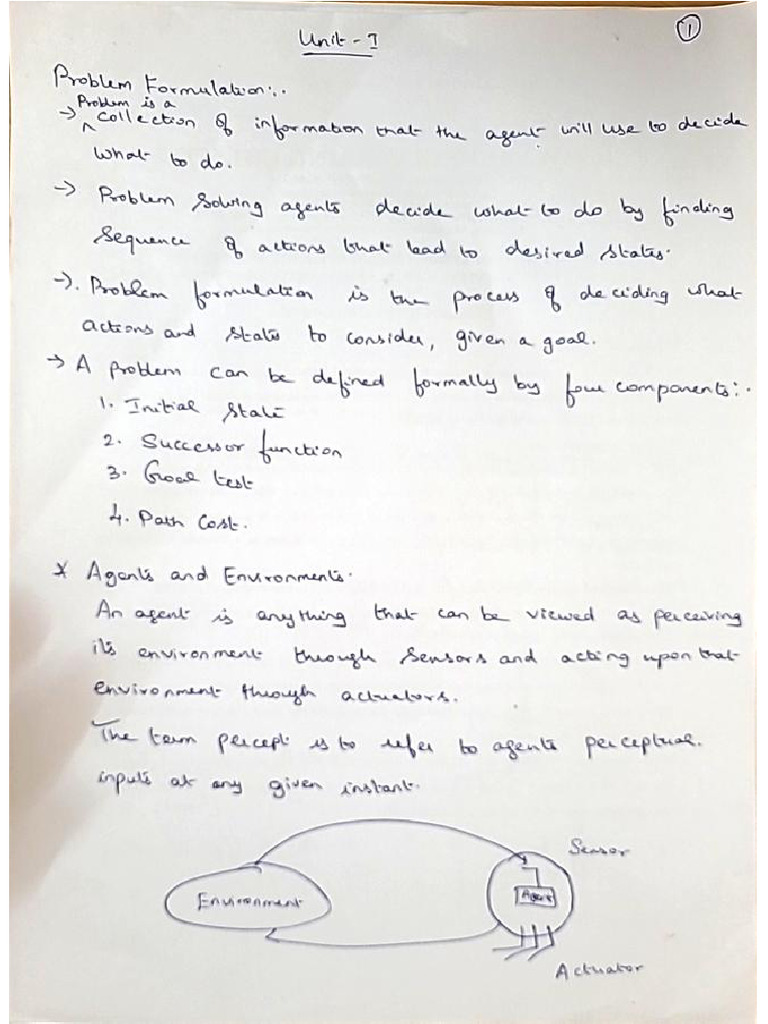 Unit - I
1
Problem Formulation:-
Problem is a
-> ^ collection of information that the agent will use to decide
what to do.
-> Problem solving agents decide what to do by finding
sequence of actions that lead to desired states.
->. Problem formulation is the process of deciding what
actions and states to consider, given a goal.
-> A problem can be defined formally by four components:-
1. Initial state
2. Successor function
3. Goal test
4. Path Cost.
* Agents and Environments:
An agent is anything that can be viewed as perceiving
its environment through sensors and acting upon that
environment through actuators.
The term percept is to refer to agents perceptual.
inputs at any given instant.
Sensor
Environment
Agent
Actuator